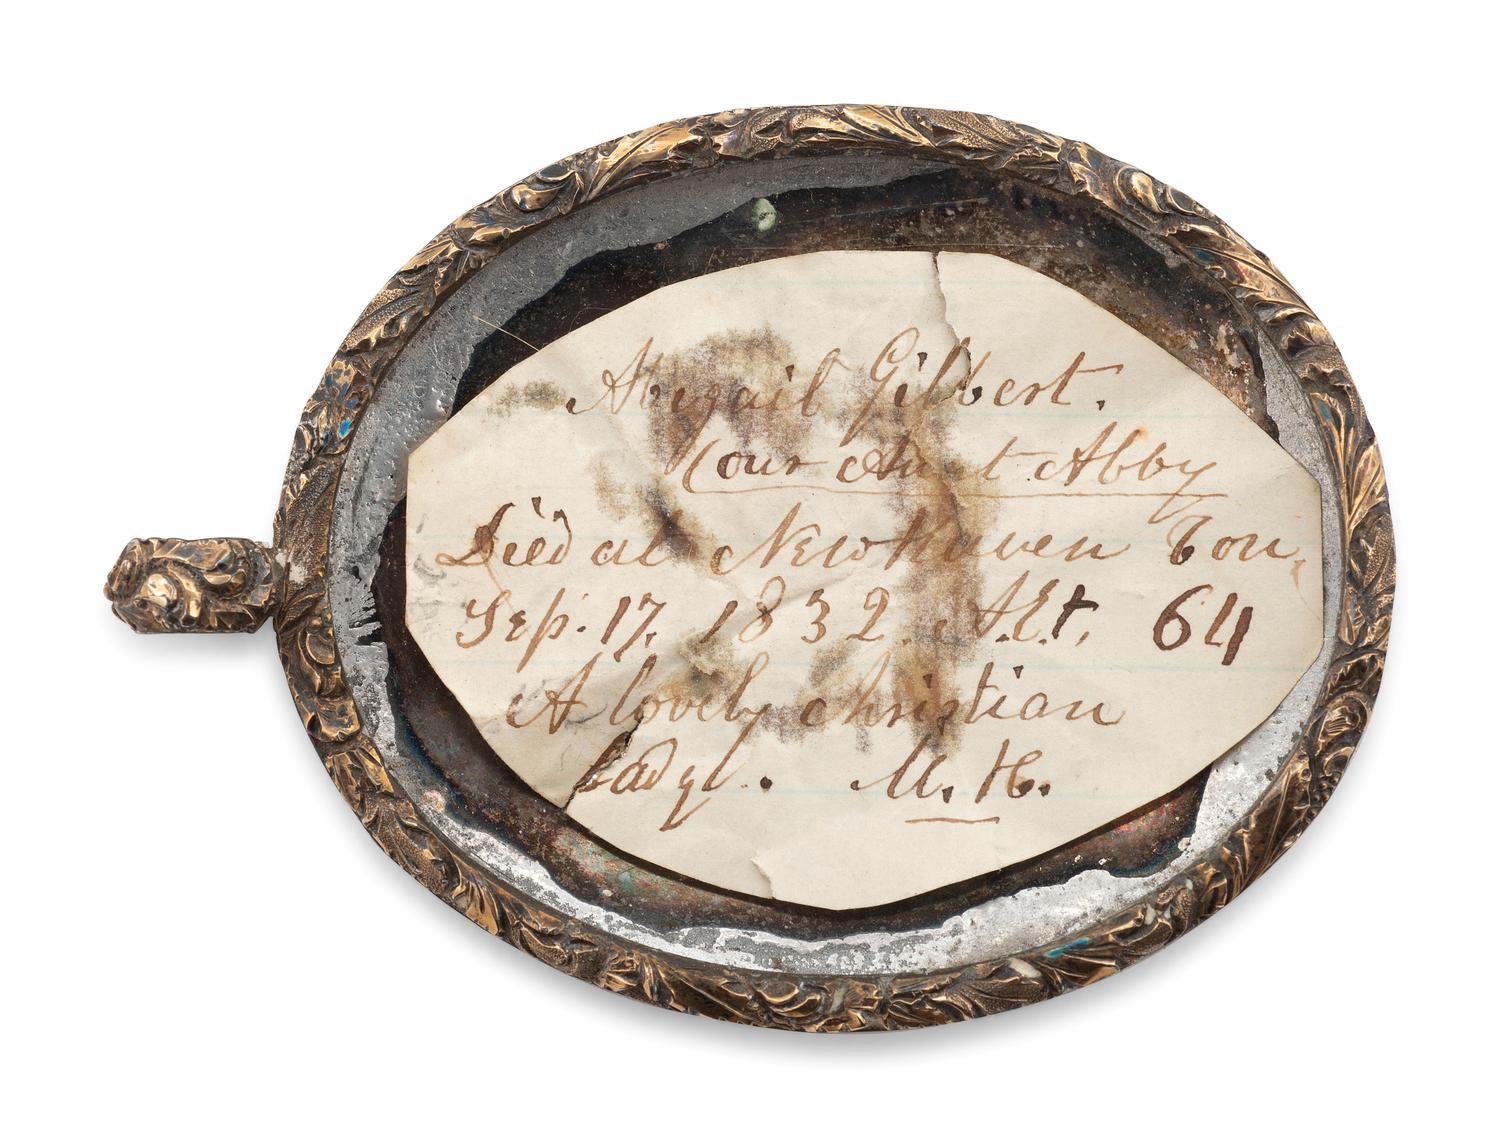 Abigail Gilbert.
(our Aunt Abby
Died at Newhaven Con,
Sep. 17. 1832. AEt, 64
A lovely christian
lady. M. H.